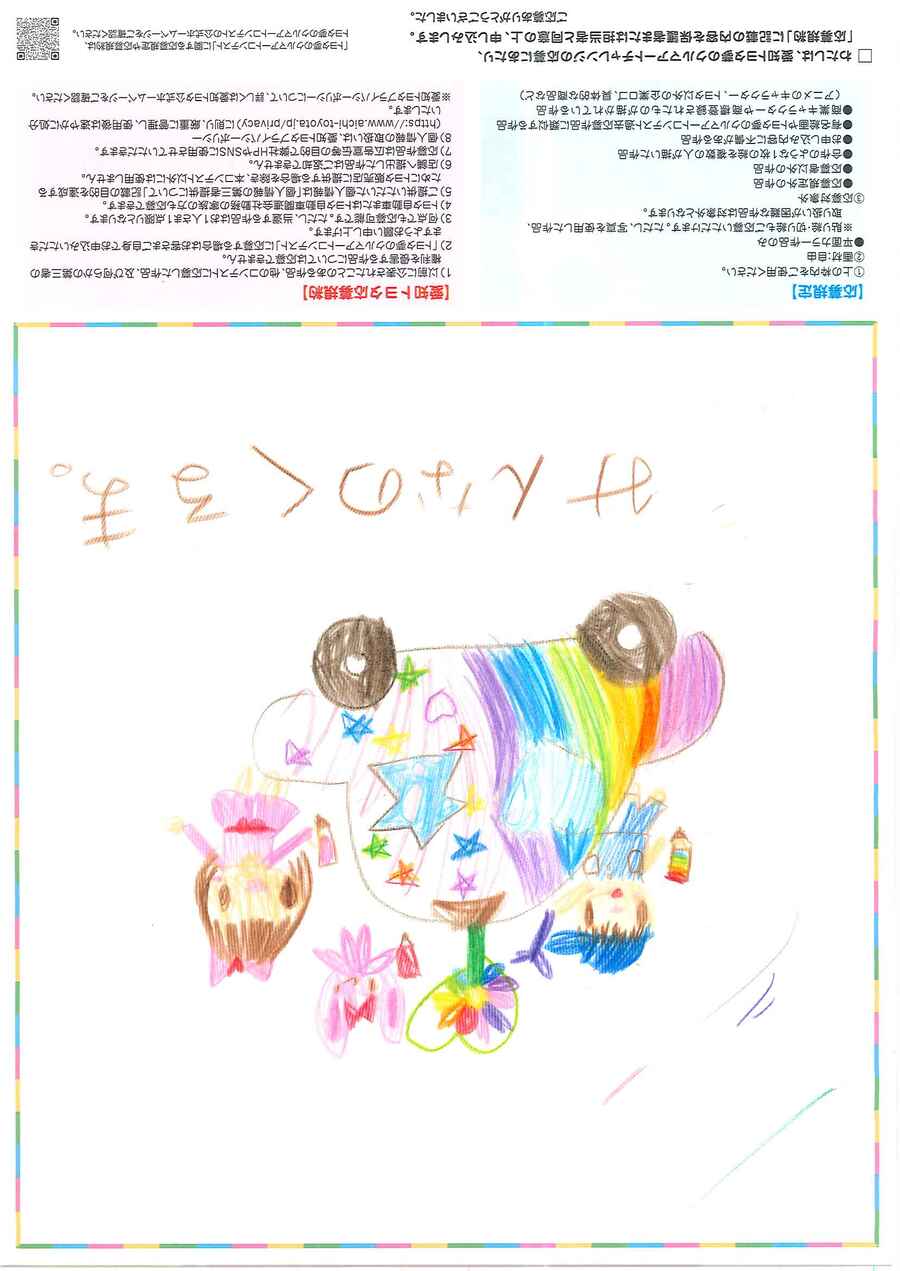 みんなのくるま。
【応募規定】
①上の枠内をご使用ください。
②画材:自由
●平面カラー作品のみ
※貼絵・切り絵もご応募いただけます。ただし、写真を使用した作品、
取り扱いが困難な作品は対象外となります。
③応募対象外
●応募規定外の作品
●応募者以外の作品
●合作のような1枚の絵を複数の人が描いた作品
●お申し込み内容に不備がある作品
●有名絵画やトヨタ夢のクルマアートコンテスト過去応募作品に類似する作品
●商業キャラクターや商標登録されたものが描かれている作品
(アニメのキャラクター、トヨタ以外の企業ロゴ、具体的な商品など)
【愛知トヨタ応募規約】
1)以前に公表されたことのある作品、他のコンテストに応募した作品、及び何らかの第三者の
権利を侵害する作品については応募できません。
2)「トヨタ夢のクルマアートコンテスト」に応募する場合はお客さまご自身でお申込みいただき
ますようお願い申し上げます。
3)何点でも応募可能です。ただし、当選する作品はお1人さま1点限りとなります。
4)トヨタ自動車またはトヨタ自動車関連会社勤務の家族の方も応募できます。
5)ご提供いただいた個人情報は「個人情報の第三者提供について」記載の目的を達成する
ためにトヨタ販売店に提供する場合を除き、本コンテスト以外には使用しません。
6)店舗へ提出した作品はご返却できません。
7)応募作品は広告宣伝等の目的で弊社HPやSNSに使用させていただきます。
8)個人情報の取扱いは、愛知トヨタプライバシーポリシー
(https://www.aichi-toyota.jp/privacy)に則り、厳重に管理し、使用後は速やかに処分
いたします。
※愛知トヨタプライバシーポリシーについて、詳しくは愛知トヨタ公式ホームページをご確認ください。
□わたしは、愛知トヨタ夢のクルマアートチャレンジの応募にあたり、
「応募規約」に記載の内容を保護者または担当者と同意の上、申し込みします。
ご応募ありがとうございました。
「トヨタ夢のクルマアートコンテスト」に関する応募規定や応募規約は、
トヨタ夢のクルマアートコンテストの公式ホームページをご確認ください。